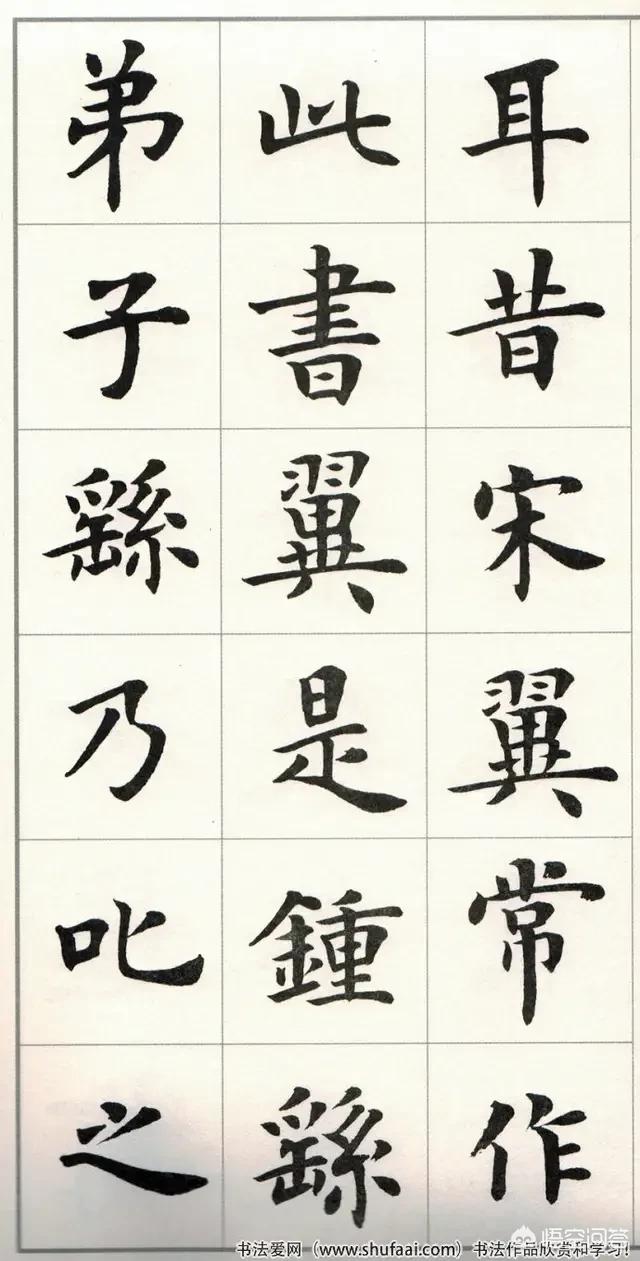 耳昔宋翼常作
此書翼是鍾繇
弟子繇乃叱之
悟空问答
书法爱网（www.shufaai.com）书法作品欣赏和学习！